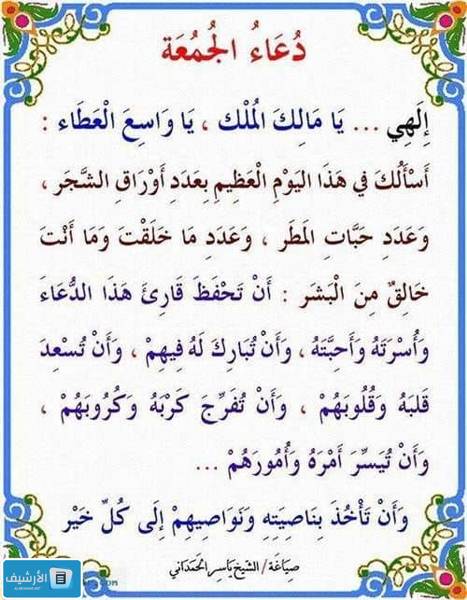 دُعَاءُ الْجُمُعَة
إِلَهِي ... يَا مَالِكَ الْمُلْك ، يَا وَاسِعَ الْعَطَاء :
أَسْأَلُكَ فِي هَذَا الْيَوْمِ الْعَظِيمِ بِعَدَدِ أَوْرَاقِ الشَّجَر ،
وَعَدَدِ حَبَّاتِ الْمَطَر ، وَعَدَدِ مَا خَلَقْتَ وَمَا أَنْتَ
خَالِقٌ مِنَ الْبَشَر : أَنْ تَحْفَظَ قَارِئَ هَذَا الدُّعَاءَ
وَأُسْرَتَهُ وَأَحِبَّتَه ، وَأَنْ تُبَارِكَ لَهُ فِيهِمْ ، وَأَنْ تُسْعِدَ
قَلْبَهُ وَقُلُوبَهُمْ ، وَأَنْ تُفَرِّجَ كَرْبَهُ وَكُرُوبَهُمْ ،
وَأَنْ تُيَسِّرَ أَمْرَهُ وَأُمُورَهُمْ ...
وَأَنْ تَأْخُذَ بِنَاصِيَتِهِ وَنَوَاصِيهِمْ إِلَى كُلِّ خَيْر
صياغة / الشيخ ياسر الحمداني
الأرشيف